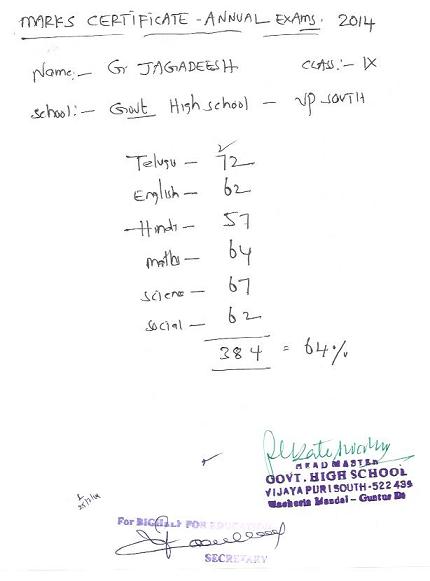 MARKS CERTIFICATE - ANNUAL EXAMS. 2014
Name:- G JAGADEESH CLASS:- IX
School:- Govt High school - VP SOUTH
Telugu - 72
English - 62
Hindi - 57
maths - 64
science - 67
social - 62
384 = 64%
HEAD MASTER
GOVT. HIGH SCHOOL
VIJAYAPURI SOUTH-522 439
Macherla Mandal - Guntur Dt
For FOR EDUCATION
SECRETARY